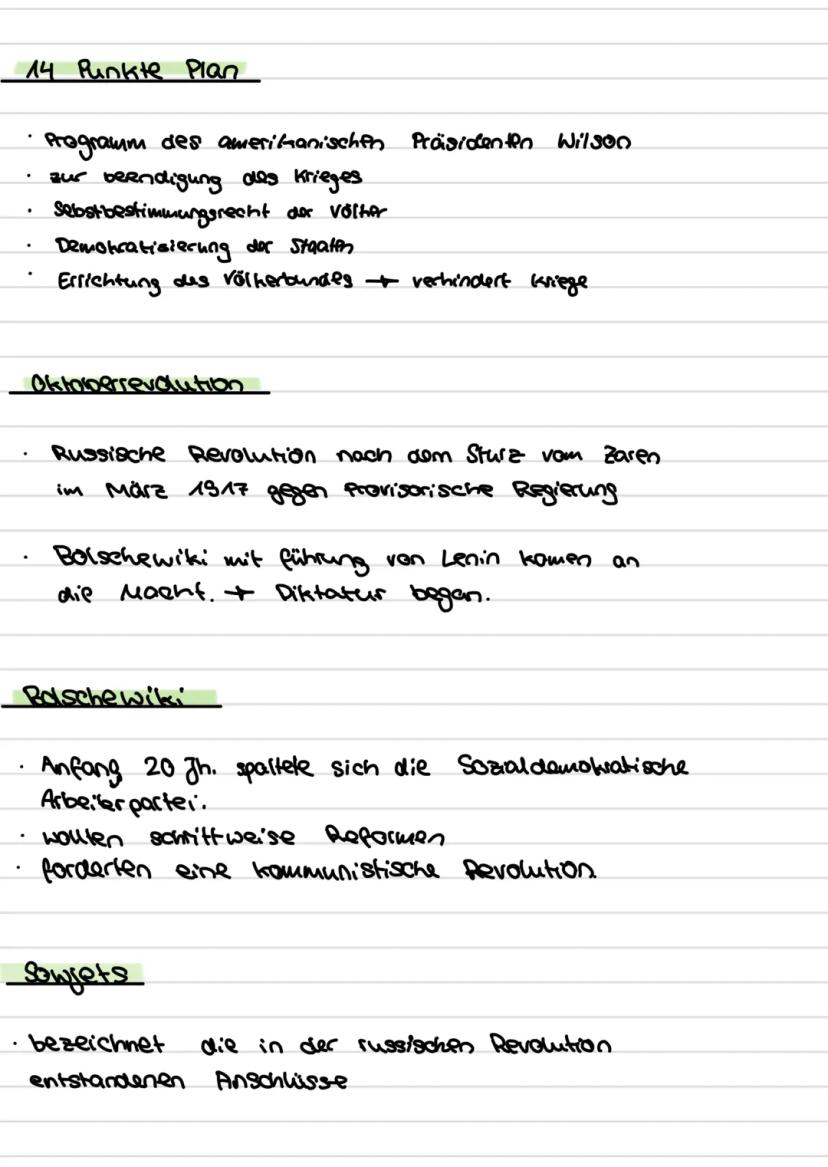 14 Punkte Plan
· Programm des amerikanischen Präsidenten Wilson
· zur beendigung des Krieges
· Selbstbestimmungsrecht der Völker
· Demokratisierung der Staaten
· Errichtung des Völkerbundes → verhindert Kriege
Oktoberrevolution
· Russische Revolution nach dem Sturz vom Zaren
im März 1917 gegen Provisorische Regierung
· Bolschewiki mit führung von Lenin kamen an
die Macht. → Diktatur began.
Bolschewiki
· Anfang 20 Jh. spaltete sich die Sozialdemokratische
Arbeiterpartei.
· wollten schrittweise Reformen
· forderten eine kommunistische Revolution.
Sowjets
· bezeichnet die in der russischen Revolution
entstandenen Anschlüsse